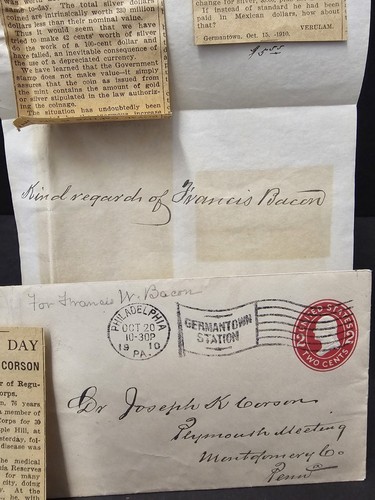 was worth
day. The total silver dollars
coined are intrinsically worth
dollars less than their nominal value.
Thus it would seem that we have
to make 42 cents' worth of silver
do the work of a 100-cent dollar and
have failed, an inevitable consequence of
the use of a depreciated currency.
We have learned that the Government
stamp does not make value—it simply
assures that the coin as issued from
the mint contains the amount of gold
or silver stipulated in the law authoriz-
ing the coinage.
The situation has undoubtedly been
increase
change for silver,
instead of standard he had been
paid in Mexican dollars, how about
that?
VERULAM.
Germantown, Oct. 15, 1910.
Kind regards of Francis Bacon
For Francis W. Bacon
PHILADELPHIA
OCT 20
10-30P
1910
PA.
GERMANTOWN
STATION
UNITED STATES
2 2
TWO CENTS
Dr Joseph K Corson
Plymouth Meeting
Montgomery Co
Penna
DAY
CORSON
r of Regu-
orps.
, 76 years
member of
Corps for 30
ple Hill, at
sterday, fol-
disease was
the medical
nia Reserves
for many
city, doing
y. At the
he, with